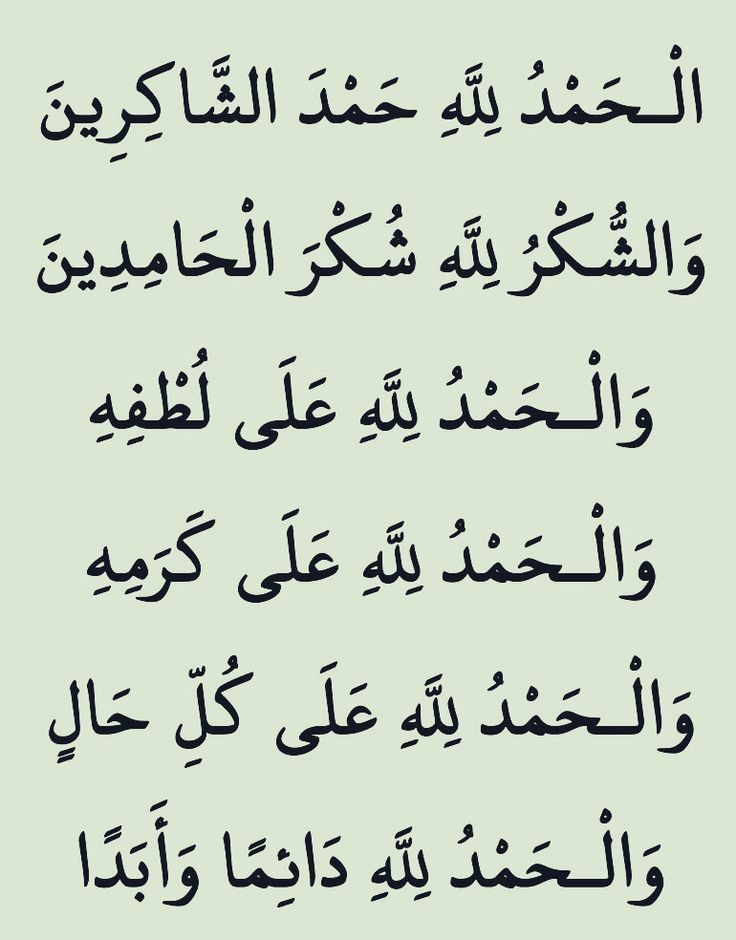 الْـحَمْدُ لِلَّهِ حَمْدَ الشَّاكِرِينَ
وَالشُّكْرُ لِلَّهِ شُكْرَ الْحَامِدِينَ
وَالْـحَمْدُ لِلَّهِ عَلَى لُطْفِهِ
وَالْـحَمْدُ لِلَّهِ عَلَى كَرَمِهِ
وَالْـحَمْدُ لِلَّهِ عَلَى كُلِّ حَالٍ
وَالْـحَمْدُ لِلَّهِ دَائِمًا وَأَبَدًا